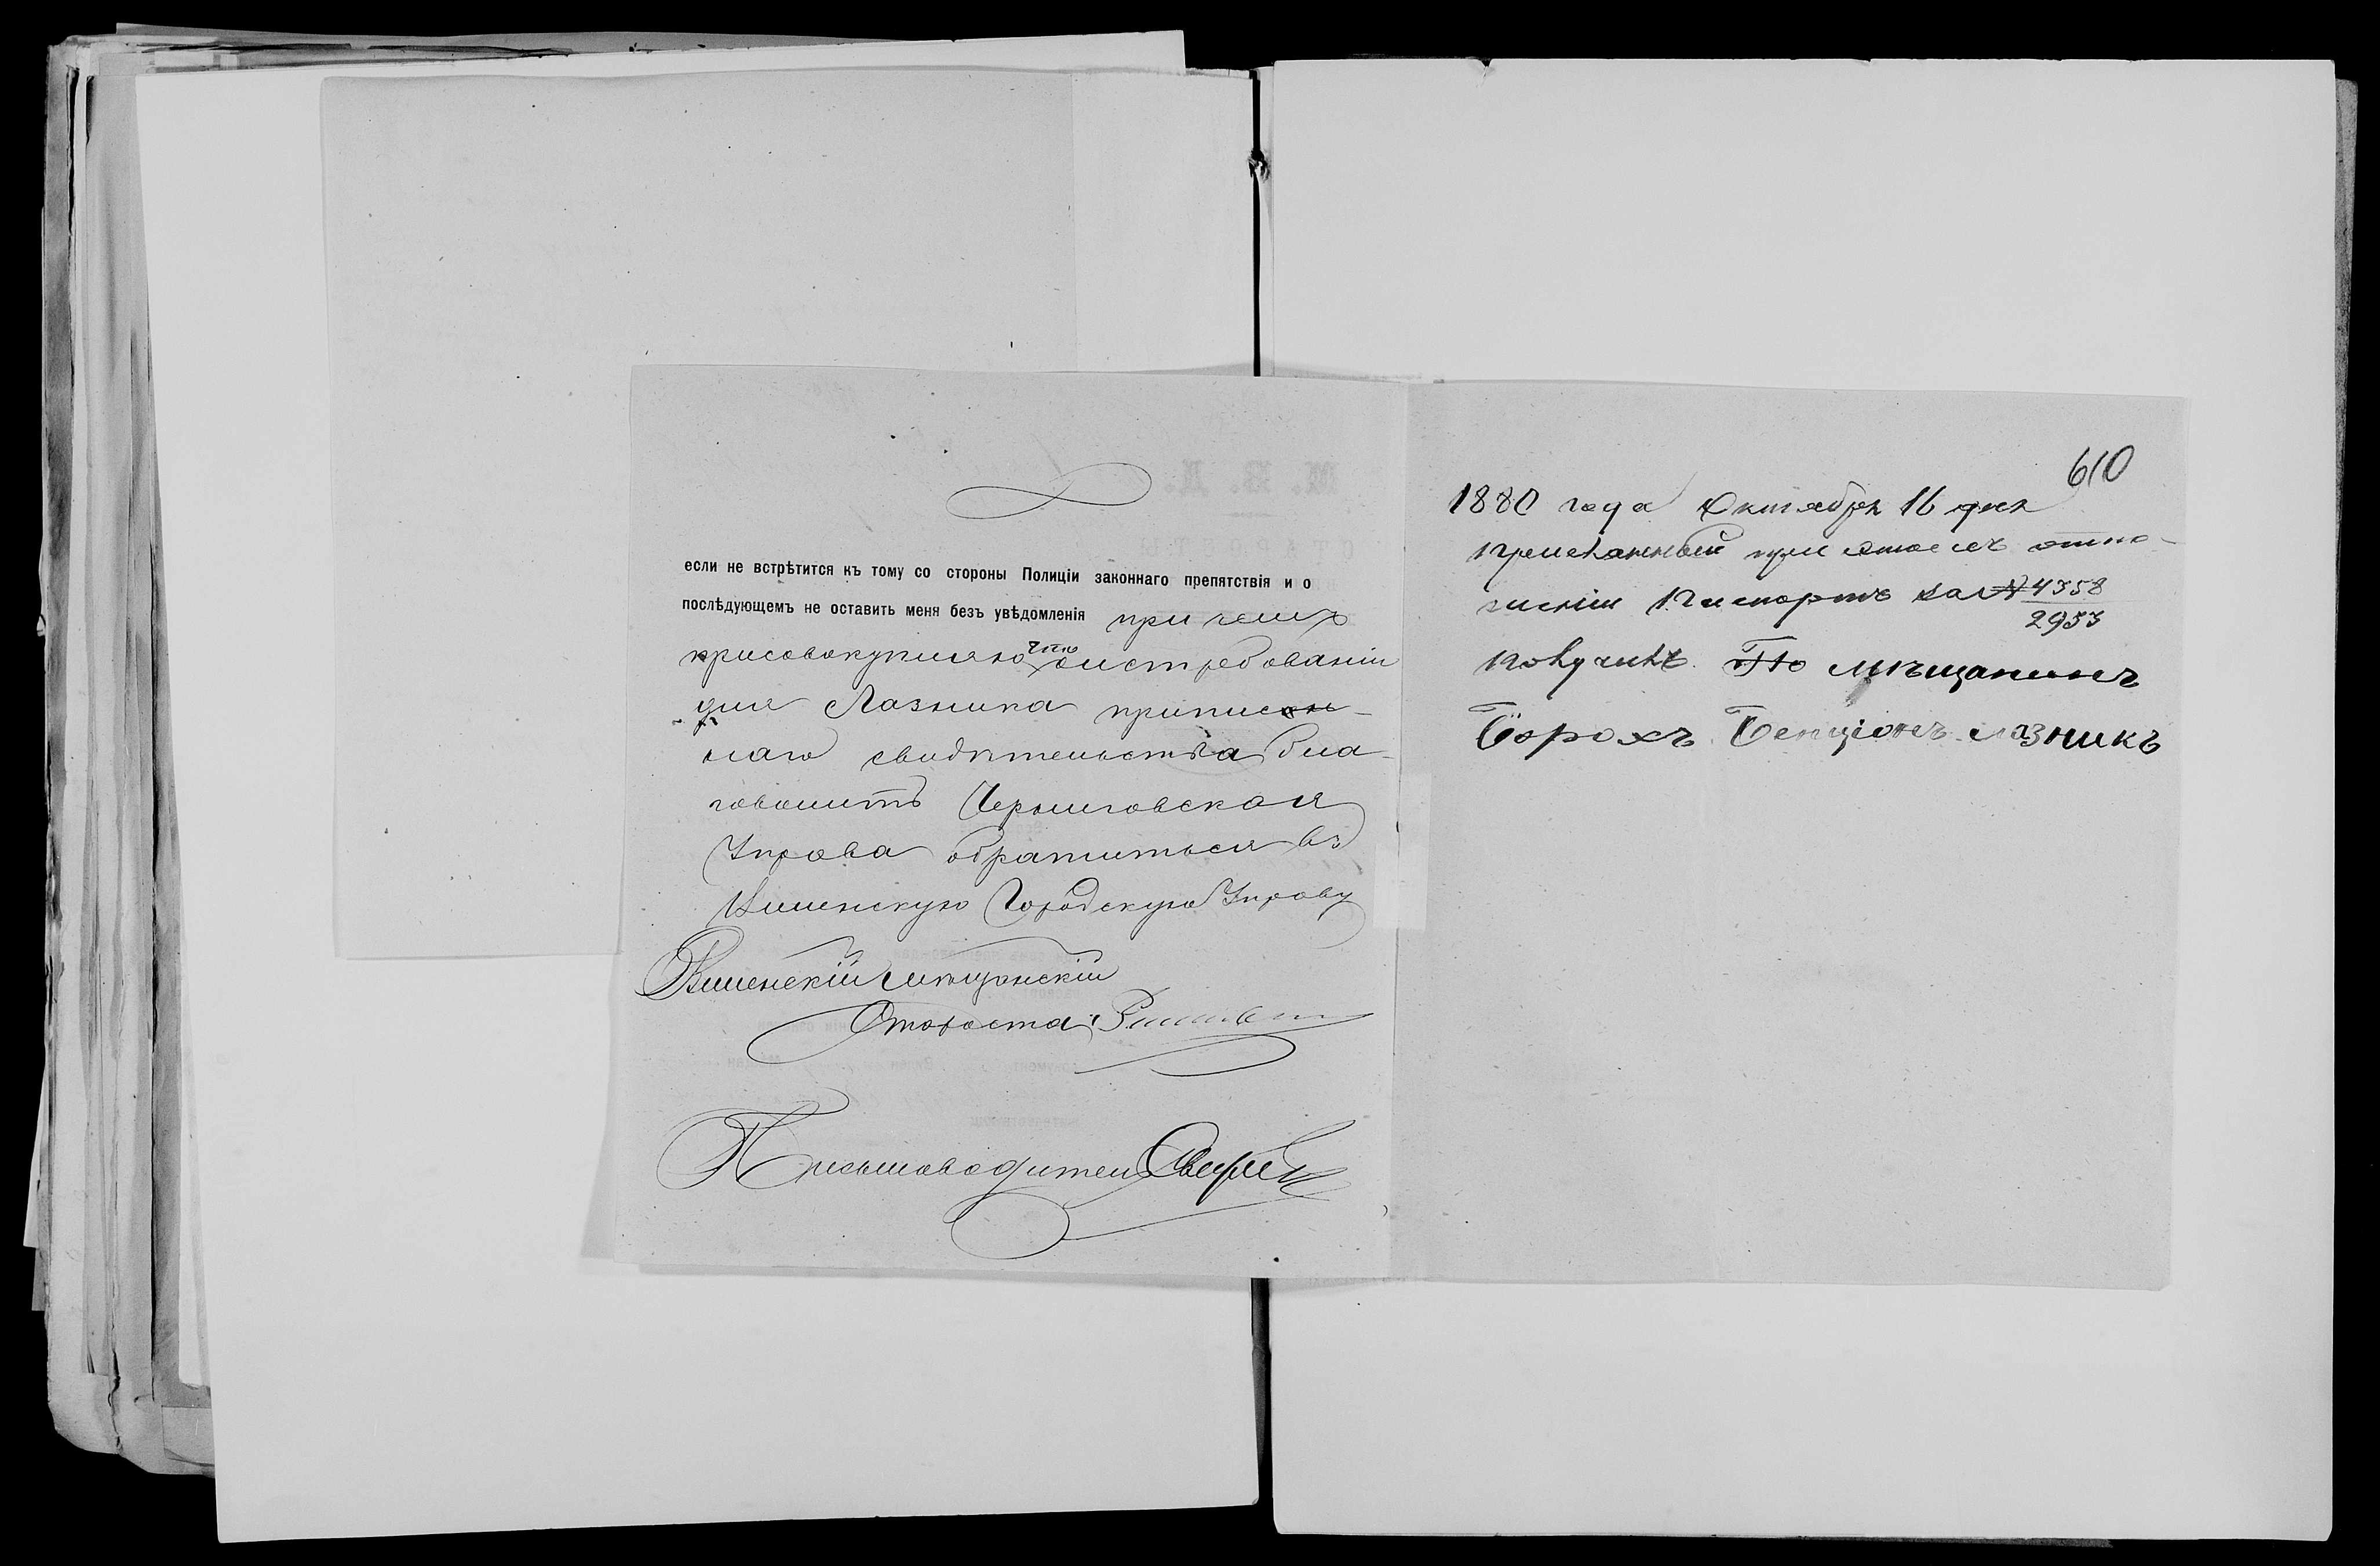 если не встрѣтится къ тому со стороны Полиціи законнаго препятствія и о
послѣдующемъ не оставить меня безъ увѣдомленія при чемъ
присовокупляю что о истребованіи
для Лазника приписан-
наго свидѣтельства бла-
говолитъ Черниговская
Управа обратиться въ
Виленскую Городскую Управу
Виленскій мѣщанскій
Староста
Письмоводитель
610
1880 года Октября 16 дня
присланный при этомъ отно-
шеніи Паспортъ за № 4358
2953
получилъ мѣщанинъ
Борохъ Бенціонъ Лазникъ